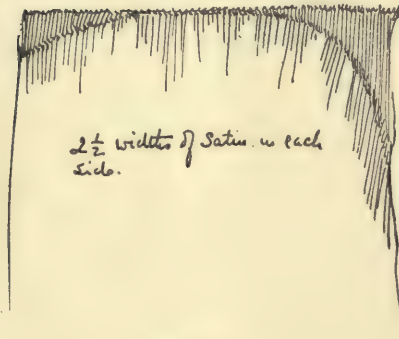 2½ widths of Satin in each
side.